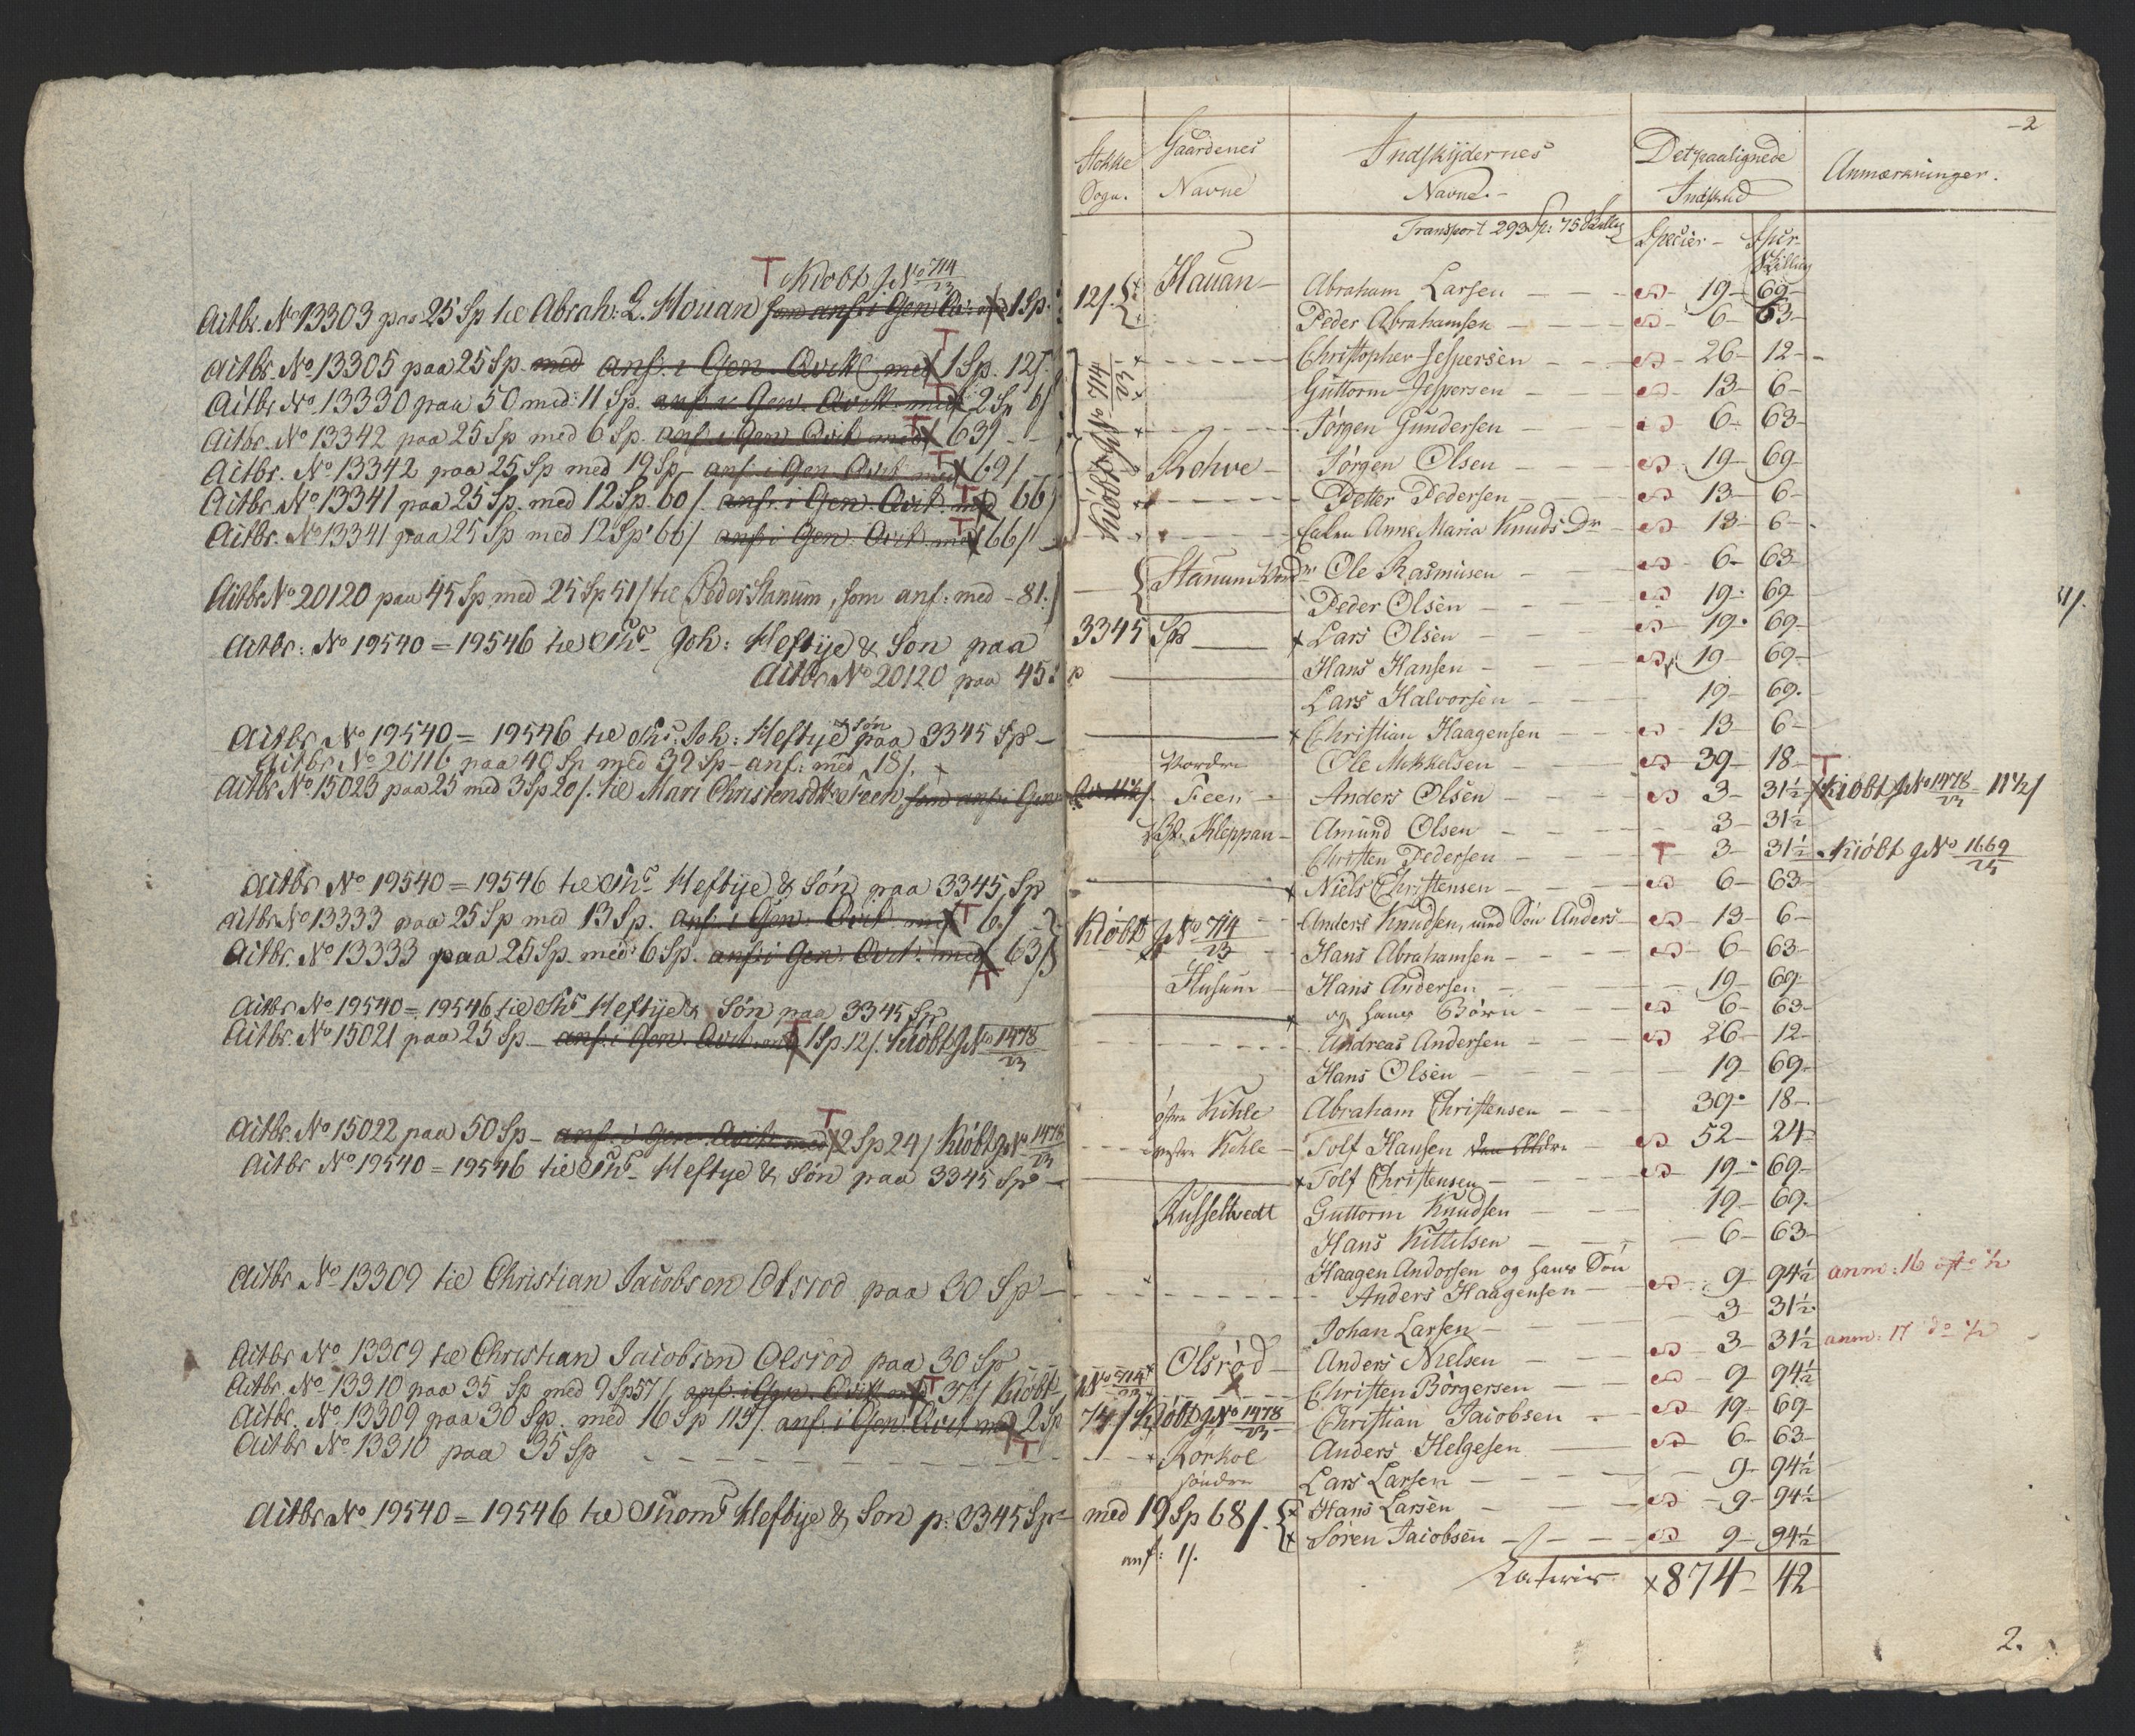 T Kiöbt g No 714/23
Aitbr. No 13303 paa 25 Sp til Abrah: L. Houan som anf: i Gen 1 Sp.
Aitbr. No 13305 paa 25 Sp. med anf. i Gen. Qvitt. med 1 Sp. 12/.
Aitbr. No 13330 paa 50 med 11 Sp. anf. i Gen. Qvitt. med 2 Sp 6/
Aitbr. No 13342 paa 25 Sp med 6 Sp. anf. i Gen Qvit med 63/
Aitbr. No 13342 paa 25 Sp med 19 Sp - anf. i Gen Qvit med 69/
Aitbr. No 13341 paa 25 Sp. med 12 Sp. 60/. anf. i Gen. Qvit. med 66/
Aitbr. No 13341 paa 25 Sp med 12 Sp 66/ anf. i Gen. Qvit. med 66/
Aitbr No 20120 paa 45 Sp med 25 Sp 51/ til Peder Stanum, som anf: med - 81./
Aitbr: No 19540 = 19546 til Ths Joh: Heftije & Son paa 3345 Sp
Aitbr No 20120 paa 45 Sp
Aitbr No 19540 = 19546 til Ths. Joh: Heftije & Søn paa 3345 Sp -
Aitbr No 20116 paa 40 Sp med 39 Sp - anf: med 18/.
Aitbr No 15023 paa 25 med 3 Sp 20/. til Mari Christensdtr Feen som anf: i Gen Qv 11½/.
Aitbr No 19540 = 19546 til Ths Heftije & Søn paa 3345 Sp
Aitbr No 13333 paa 25 Sp med 13 Sp. anf. i Gen. Qvit. med T 6/
Aitbr. No 13333 paa 25 Sp. med 6 Sp. anf: i Gen. Qvit. med 63/ Kiöbt g No 714/23
Aitbr No 19540 = 19546 til Ths Heftije & Søn paa 3345 Sp
Aitbr. No 15021 paa 25 Sp - anf: i Gen. Qvit med 1 Sp. 12/. Kiöbt g No 1478/23
Aitbr. No 15022 paa 50 Sp - anf. i Gen. Qvit med 2 Sp 24/ Kiöbt g No 1478/23
Aitbr No 19540 = 19546 til Ths Heftye & Søn paa 3345 Sp -
Aitbr No 13309 til Christian Jacobsen Olsrod paa 30 Sp -
Aitbr No 13309 til Christian Jacobsen Olsrod paa 30 Sp
Aitbr. No 13310 paa 35 Sp med 9 Sp 57/. anf. i Gen. Qvitt med T 37½/ Kiöbt No 714/23
Aitbr. No 13309 paa 30 Sp. med 16 Sp 115/. anf. i Gen. Qvit. med 2 Sp 74/ Kiöbt g No 1478/23
Aitbr No 13310 paa 35 Sp
Aitbr No 19540 = 19546 til Thoms Heftije & Son p: 3345 Sp - med 19 Sp 68/.
anf: 1/.
-2
Stokke Sogn.
Gaardenes Navne
Indskydernes Navne. -
Det paalignede Indskud
Anmærkninger.
Transport 293 Sp: 75 Skilling
Specier - Spec. Skilling
12/. Hauan - Abraham Larsen - 19 - 69 -
Peder Abrahamsen - 6 - 63 -
Christopher Jespersen - 26 - 12 -
Kiöbt g No 714/23
Guttorm Jespersen - 13 - 6 -
Jörgen Gundersen - 6 - 63 -
Rohve - Jörgen Olsen - 19 - 69 -
Petter Pedersen - 13 - 6 -
Anne Maria Knuds Dr - 13 - 6 -
Stanum Ole Rasmusen - 6 - 63 -
Peder Olsen - 19 - 69
Lars Olsen - 19 - 69 -
Hans Hansen - 19 - 69 -
Lars Halvorsen - 19 - 69.
Christian Haagensen - 13 - 6 -
Nordre Ole Mikkelsen - 39 - 18 -
Feen - Anders Olsen - 3 - 31½ T Kiöbt g No 1478/23 - 11½/
Kleppan - Amund Olsen - 3 - 31½
Christen Pedersen - T 3 - 31½ Kiöbt g No 1669/25
Niels Christensen - 6 - 63 -
Anders Knudsen, und Søn Anders - 13 - 6 -
Hans Abrahamsen - 6 - 63 -
Husum - Hans Andersen - 19 - 69 -
og hans Börn - 6 - 63 -
Andreas Andersen - 26 - 12 -
Hans Olsen - 19 - 69 -
östre Kihle Abraham Christensen - 39 - 18 -
vestre Kihle - Tolf Hansen den Eldre - 52 - 24 -
Tolf Christensen - 19 - 69 -
Russeltvedt Guttorm Knudsen - 19 - 69 -
Hans Kittilsen - 6 - 63 -
Haagen Andorsen og hans Søn
Anders Haagensen - 9 - 94½ anm: 16
Johan Larsen - 3 - 31½
Olsröd - Anders Nielsen - 3 - 31½ anm: 17 do ½
Christen Börgersen - 9 - 94½
Christian Jacobsen - 19 - 69 -
Rörkol Anders Helgesen - 6 - 63 -
söndre Lars Larsen - 9 - 94½
Hans Larsen - 9 - 94½
Sören Jacobsen - 9 - 94½
Lateris 874 - 42
2.